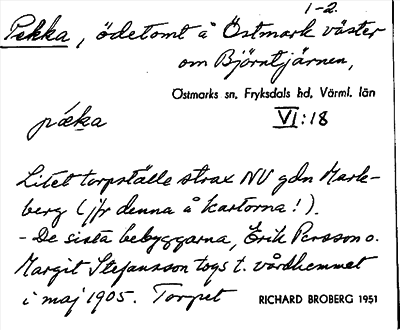 1-2
Pekka, ödetomt å Östmark väster
om Björntjärnen,
Östmarks sn, Fryksdals hd, Värml. län
pæka VI:18
Litet torpställe strax NV gdn Mark-
berg (jfr denna å kartorna!).
- De sista bebyggarna, Erik Persson o.
Margit Stefansson togs t. vårdhemmet
i maj 1905. Torpet RICHARD BROBERG 1951